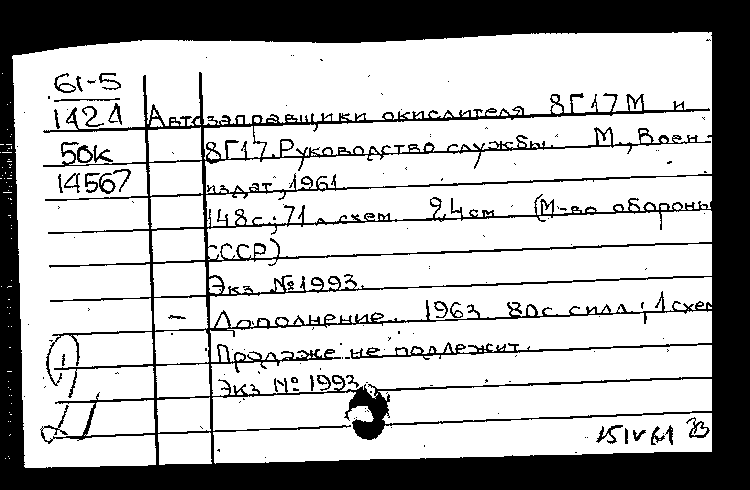 61-5
142Д Автозаправщики окислителя 8Г17М и
50к 8Г17. Руководство службы. М., Воен-
14567 издат, 1961.
148с.; 71 л схем. 24см (М-во обороны
СССР)
Экз №1993.
– Дополнение. 1963 80с с илл.; 1 схем
Продаже не подлежит.
Экз №1993
15 IV 61